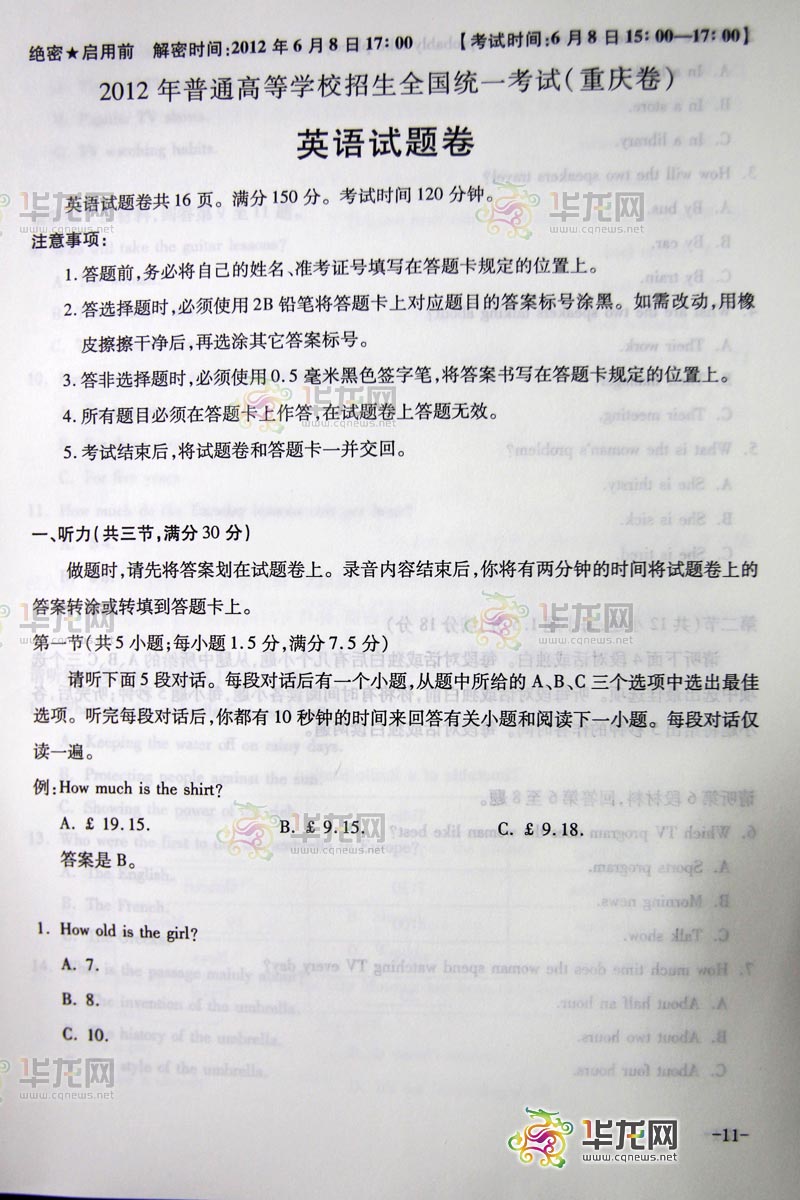 绝密★启用前 解密时间:2012年6月8日17:00 【考试时间:6月8日15:00—17:00】
2012年普通高等学校招生全国统一考试(重庆卷)
英语试题卷
英语试题卷共16页。满分150分。考试时间120分钟。
注意事项:
1.答题前,务必将自己的姓名、准考证号填写在答题卡规定的位置上。
2.答选择题时,必须使用2B铅笔将答题卡上对应题目的答案标号涂黑。如需改动,用橡
皮擦擦干净后,再选涂其它答案标号。
3.答非选择题时,必须使用0.5毫米黑色签字笔,将答案书写在答题卡规定的位置上。
4.所有题目必须在答题卡上作答,在试题卷上答题无效。
5.考试结束后,将试题卷和答题卡一并交回。
一、听力(共三节,满分30分)
做题时,请先将答案划在试题卷上。录音内容结束后,你将有两分钟的时间将试题卷上的
答案转涂或转填到答题卡上。
第一节(共5小题;每小题1.5分,满分7.5分)
请听下面5段对话。每段对话后有一个小题,从题中所给的A、B、C三个选项中选出最佳
选项。听完每段对话后,你都有10秒钟的时间来回答有关小题和阅读下一小题。每段对话仅
读一遍。
例:How much is the shirt?
A. £ 19.15. B. £ 9.15. C. £ 9.18.
答案是B。
1. How old is the girl?
A. 7.
B. 8.
C. 10.
华龙网
www.cqnews.net
-11-